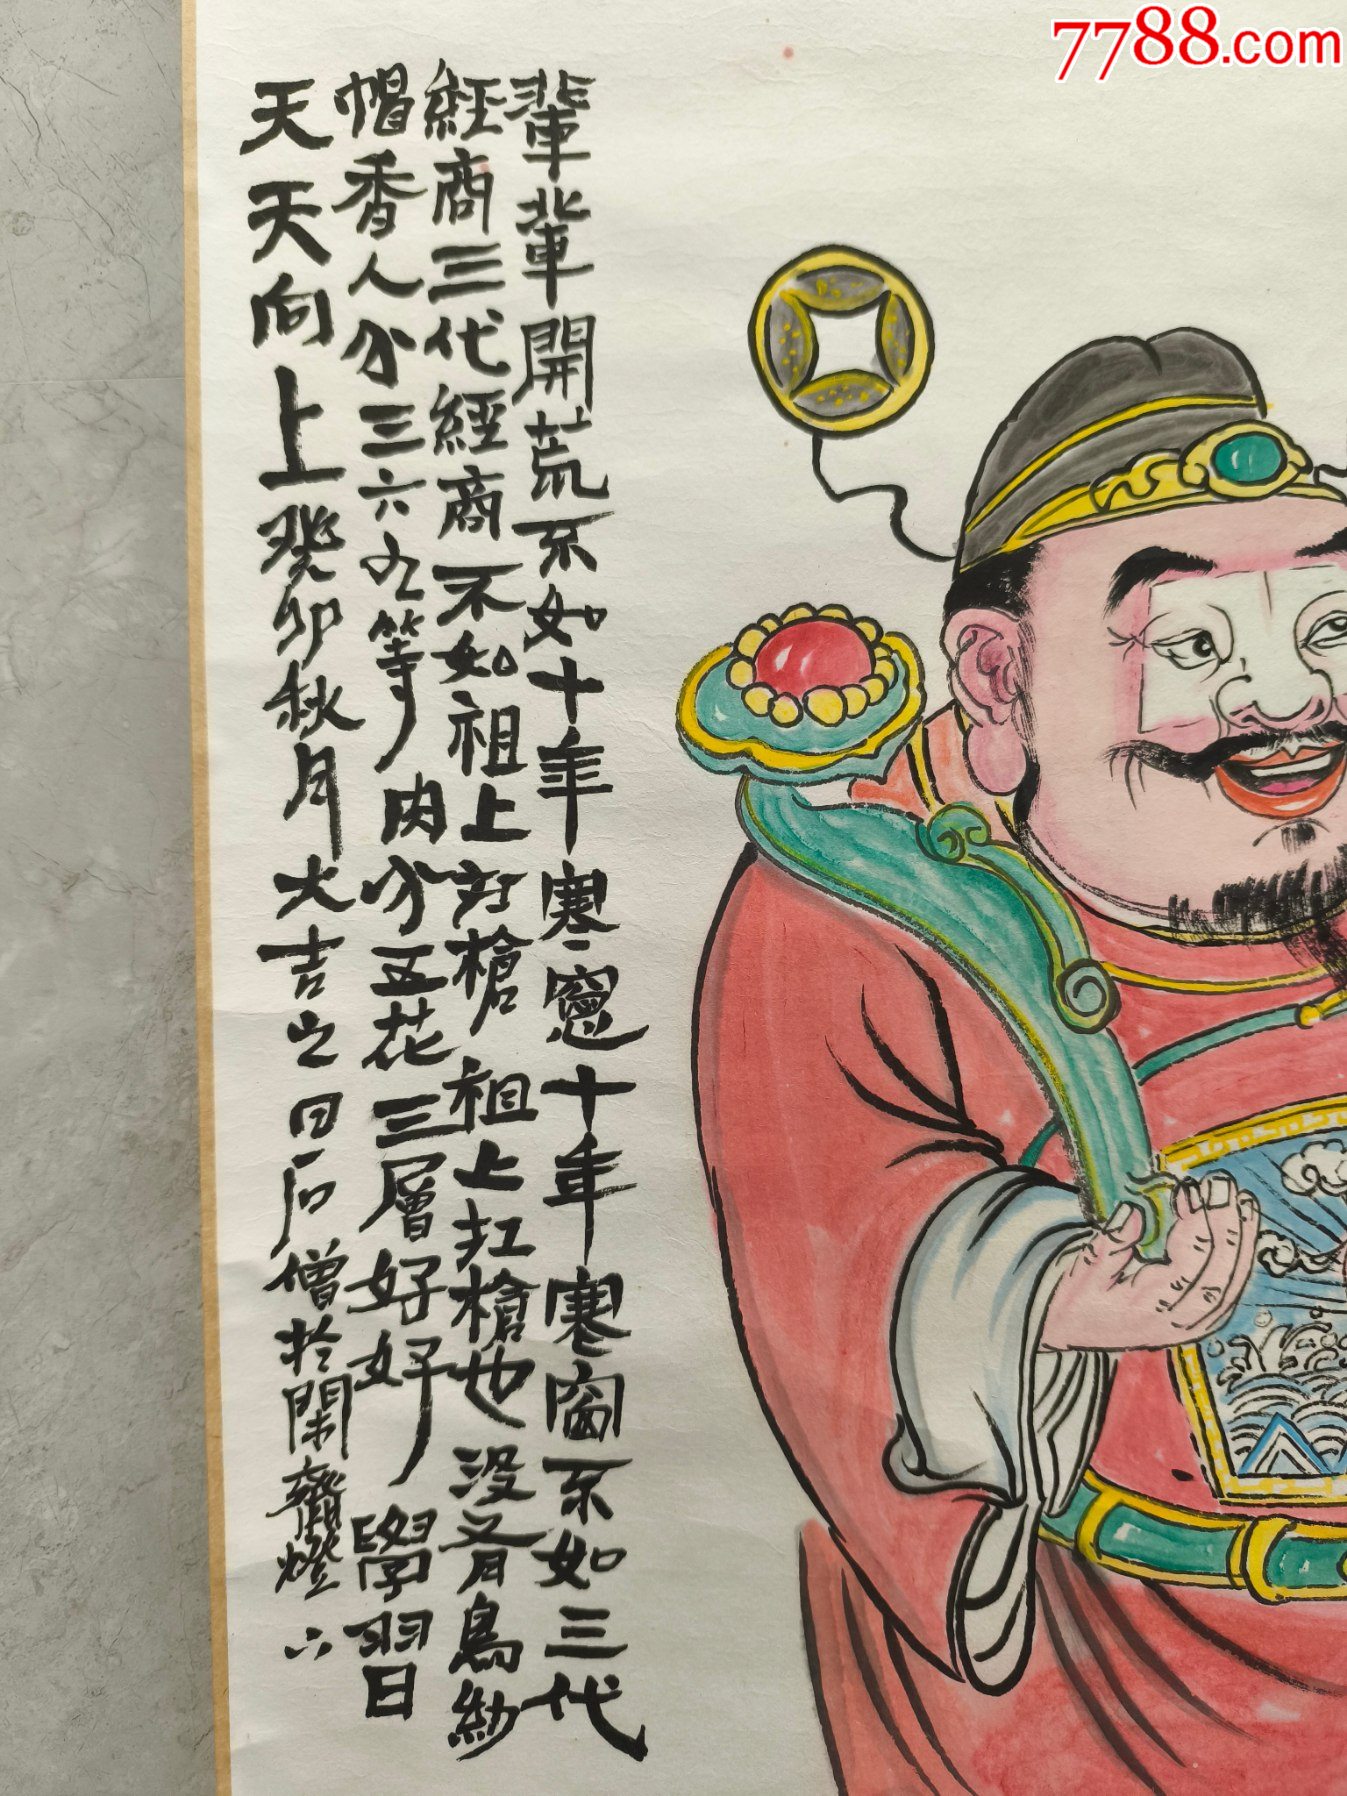 7788.com
輩輩開荒不如十年寒窻十年寒窗不如三代
経商三代經商不如祖上扛槍祖上扛槍也没有烏紗
帽香人分三六九等肉分五花三層好好學習
天天向上癸卯秋月大吉之日石僧於閑齋燈下